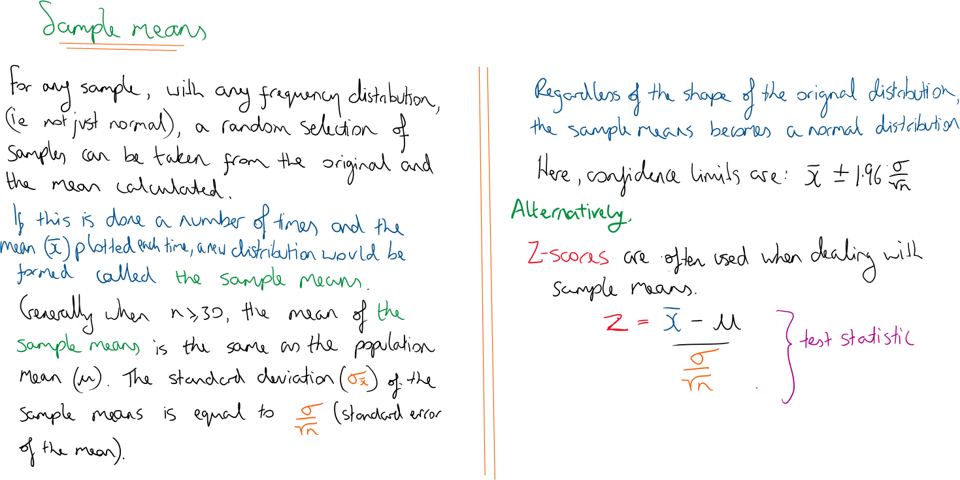 Sample means
For any sample, with any frequency distribution,
(ie not just normal), a random selection of
samples can be taken from the original and
the mean calculated.
If this is done a number of times and the
mean (x̄) plotted each time, a new distribution would be
formed called the sample means.
Generally when n ≥ 30, the mean of the
sample means is the same as the population
mean (μ). The standard deviation (σx̄) of the
sample means is equal to σ/√n (standard error
of the mean).
Regardless of the shape of the original distribution,
the sample means becomes a normal distribution
Here, confidence limits are: x̄ ± 1.96 σ/√n
Alternatively,
Z-scores are often used when dealing with
sample means.
Z = x̄ - μ
σ/√n
test statistic